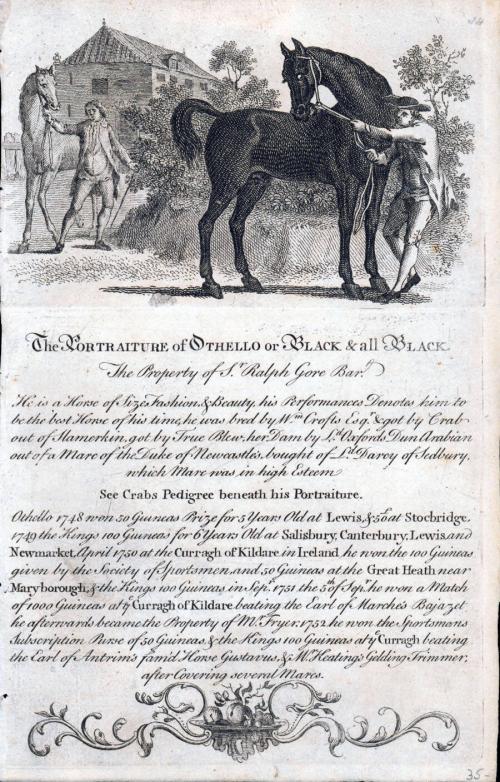 34
The PORTRAITURE of OTHELLO or BLACK & all BLACK.
The Property of Sr. Ralph Gore Bart.
He is a Horse of Size, Fashion, & Beauty, his Performances Denotes him to
be the best Horse of his time, he was bred by Wm. Crofts Esqr. & got by Crab
out of Slamerkin, got by True Blew, her Dam by Ld. Oxfords Dun Arabian
out of a Mare of the Duke of Newcastles, bought of Ld. Darcy of Sedbury,
which Mare was in high Esteem
See Crabs Pedigree beneath his Portraiture.
Othello 1748 won 50 Guineas Prize for 5 Years Old at Lewis, & 50£ at Stocbridge.
1749 the Kings 100 Guineas for 6 Years Old at Salisbury, Canterbury, Lewis, and
Newmarket, April 1750 at the Curragh of Kildare in Ireland he won the 100 Guineas
given by the Society of Sportsmen, and 50 Guineas at the Great Heath near
Maryborough, & the Kings 100 Guineas in Sepr. 1751 the 5th of Sepr. he won a Match
of 1000 Guineas at ye Curragh of Kildare beating the Earl of March's Bajazet
he afterwards became the Property of Mr. Fryer, 1752 he won the Sportsmans
Subscription Purse of 50 Guineas, & the Kings 100 Guineas at ye Curragh beating
the Earl of Antrim's fam'd Horse Gustavus, & Mr. Keating's Gelding Trimmer,
after Covering several Mares.
35